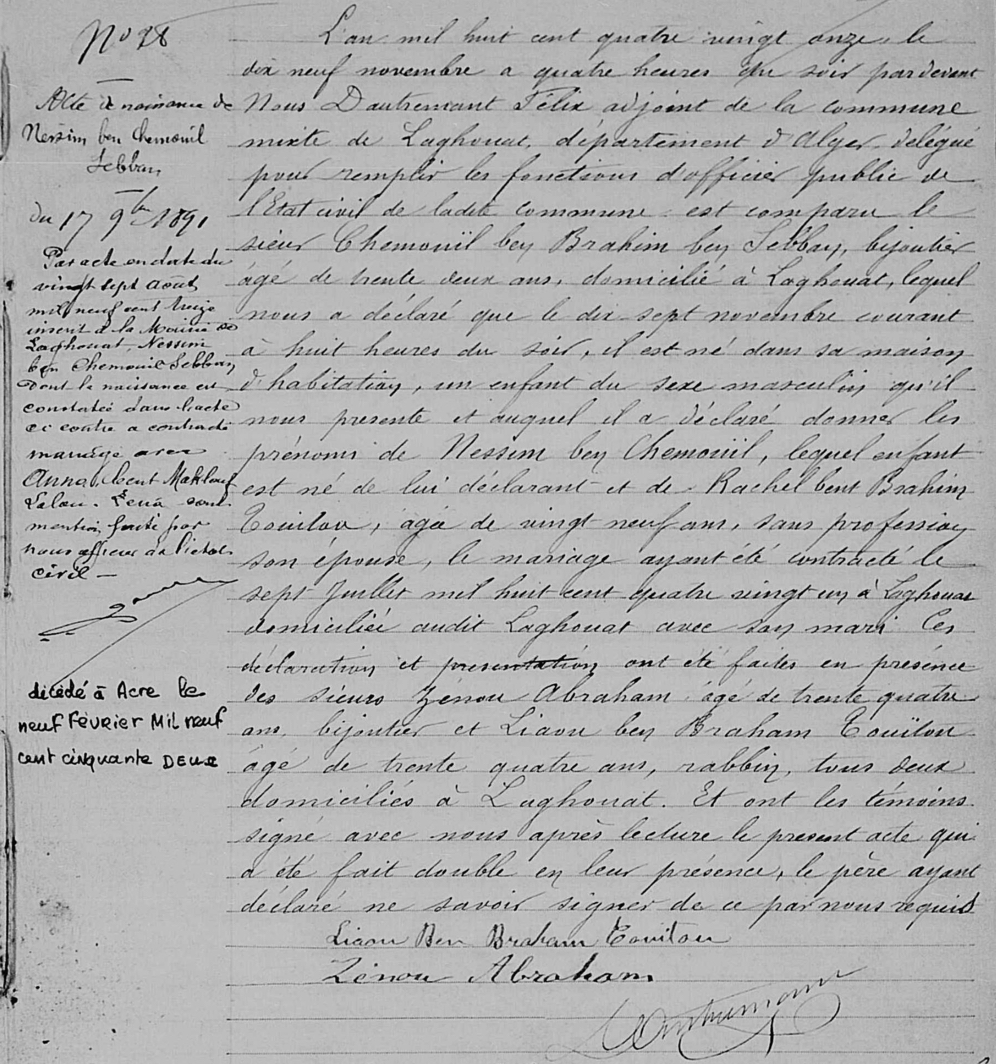 No 28
Acte de naissance de
Nessim ben Chemouïl
Sebban
du 17 9bre 1891
Par acte en date du
vingt sept août
mil neuf cent treize
inscrit à la Mairie de
Laghouat, Nessim
ben Chemouil Sebban
dont la naissance est
constatée dans l'acte
ci contre a contracté
mariage avec
Anna bent Makhlouf
Lalou.
mention faite par
nous officier de l'état
civil —
décédé à Acre le
neuf Février Mil neuf
cent cinquante Deux
L'an mil huit cent quatre vingt onze, le
dix neuf novembre a quatre heures du soir pardevant
Nous Dautremant Félix adjoint de la commune
mixte de Laghouat, département d'Alger, délégué
pour remplir les fonctions d'officier public de
l'Etat civil de ladite commune est comparu le
sieur Chemouïl ben Brahim ben Sebban, bijoutier
âgé de trente deux ans, domicilié à Laghouat, lequel
nous a déclaré que le dix sept novembre courant
à huit heures du soir, il est né dans sa maison
d'habitation, un enfant du sexe masculin qu'il
nous presente et auquel il a déclaré donner les
prénoms de Nessim ben Chemouïl, lequel enfant
est né de lui déclarant et de Rachel bent Brahim
Touitou, âgée de vingt neuf ans, sans profession
son épouse, le mariage ayant été contracté le
sept Juillet mil huit cent quatre vingt un à Laghouat
domiciliée audit Laghouat avec son mari Ces
déclaration et presentation ont été faites en présence
des sieurs Zénou Abraham âgé de trente quatre
ans, bijoutier et Liaou ben Braham Touïtou
âgé de trente quatre ans, rabbin, tous deux
domiciliés à Laghouat. Et ont les témoins
signé avec nous après lecture le present acte qui
a été fait double en leur présence, le père ayant
déclaré ne savoir signer de ce par nous requis
Liaou Ben Braham Touitou
Zénou Abraham
Dautremant